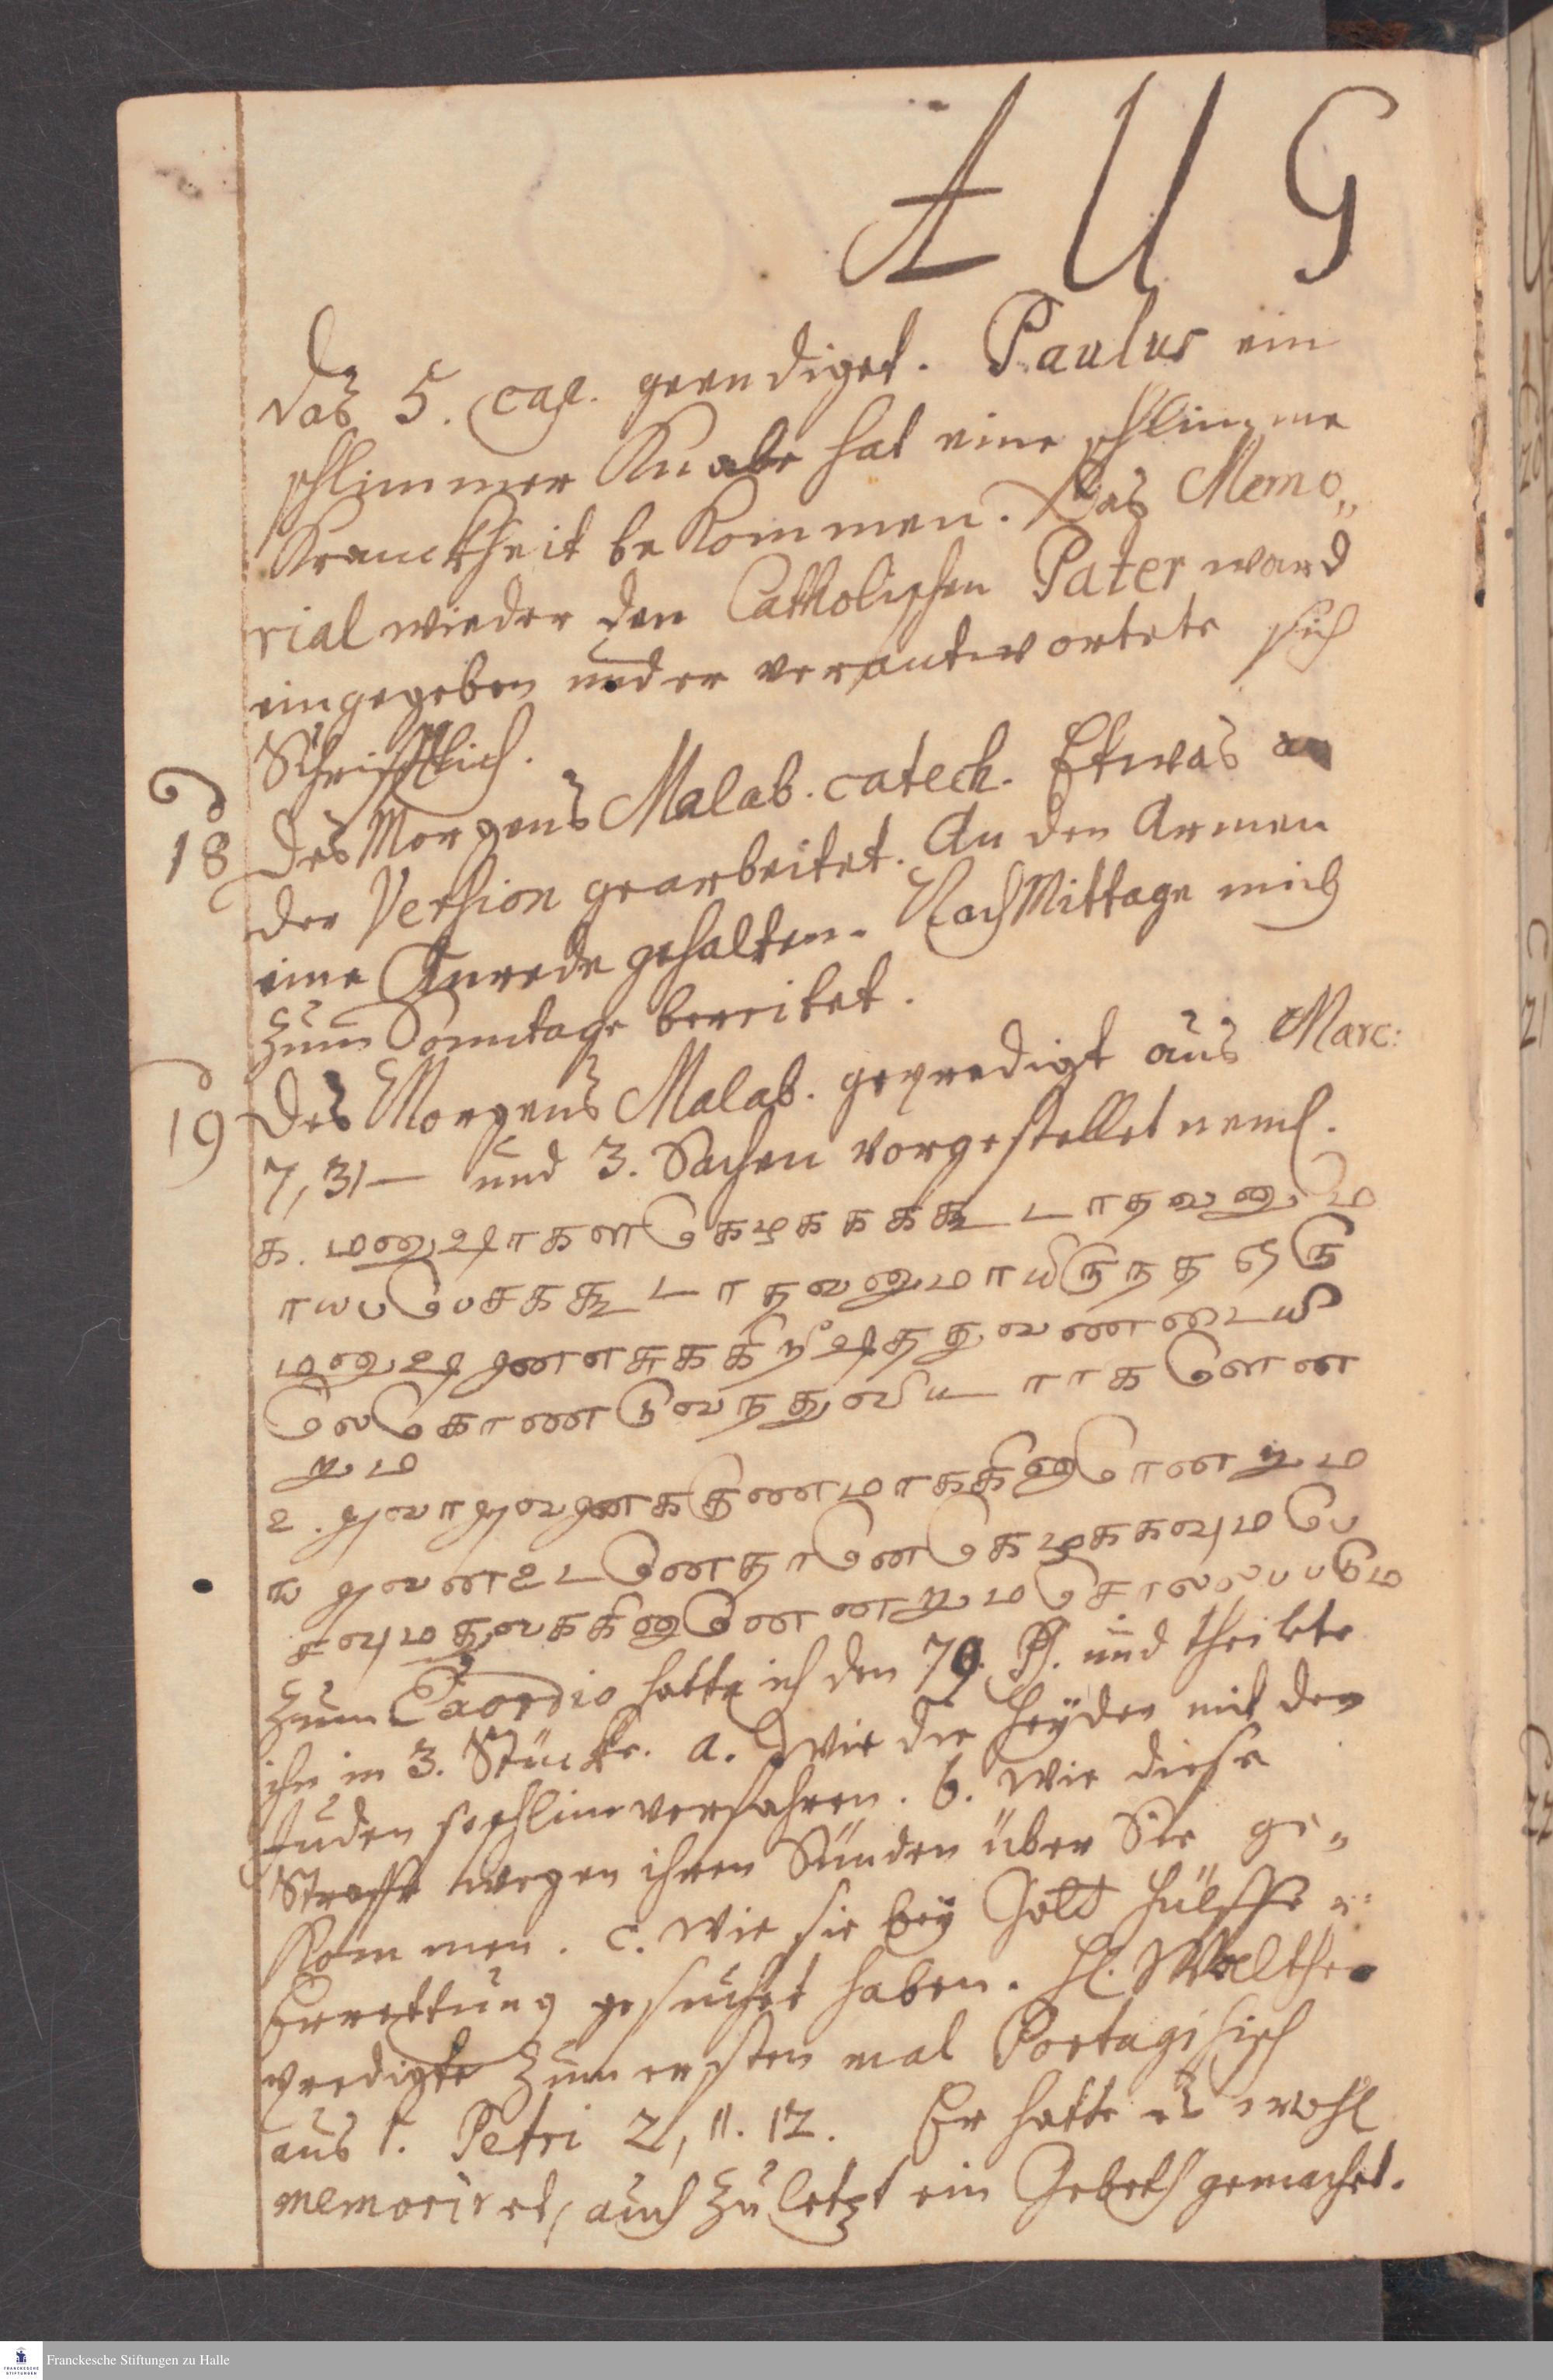 AUG
das 5. cap. geendiget. Paulus ein
schlimmer Knabe hat eine schlimme
Kranckheit bekommen. Das Memo„
rial wieder den Catholischen Pater ward
eingegeben und er verantwortete sich
Schrifftlich.
18 Des Morgens Malab. catech. Etwas an
der Version gearbeitet. An den Armen
eine Anrede gehalten. NachMittage mich
zum Sontage bereitet.
19 Des Morgens Malab. gepredigt aus Marc:
7, 31— und 3. Sachen vorgestellet neml.
க. மனுஷரகளகெழகககக கூடாதவனும
ரயபபெசககூடாதவனுமாயிருநத ஒரு
மனுஷனை
லெகொணடுவநது
றும
Zum Exordio hatte ich den 79. Ps. und theilte
ihn in 3. Stücke. a. Wie die Heyden mit den
Juden so schlim verfahren. b. Wie diese
Straffe wegen ihren Sünden über Sie ge„
kommen. c. Wie sie bey Gott Hülffe u:
Errettung gesuchet haben. H. Walther
predigte zum ersten mal Portugisisch
aus 1. Petri 2, 11. 12. Er hatte es wohl
memoriret, auch zuletzt ein Gebeth gemachet.
Franckesche Stiftungen zu Halle